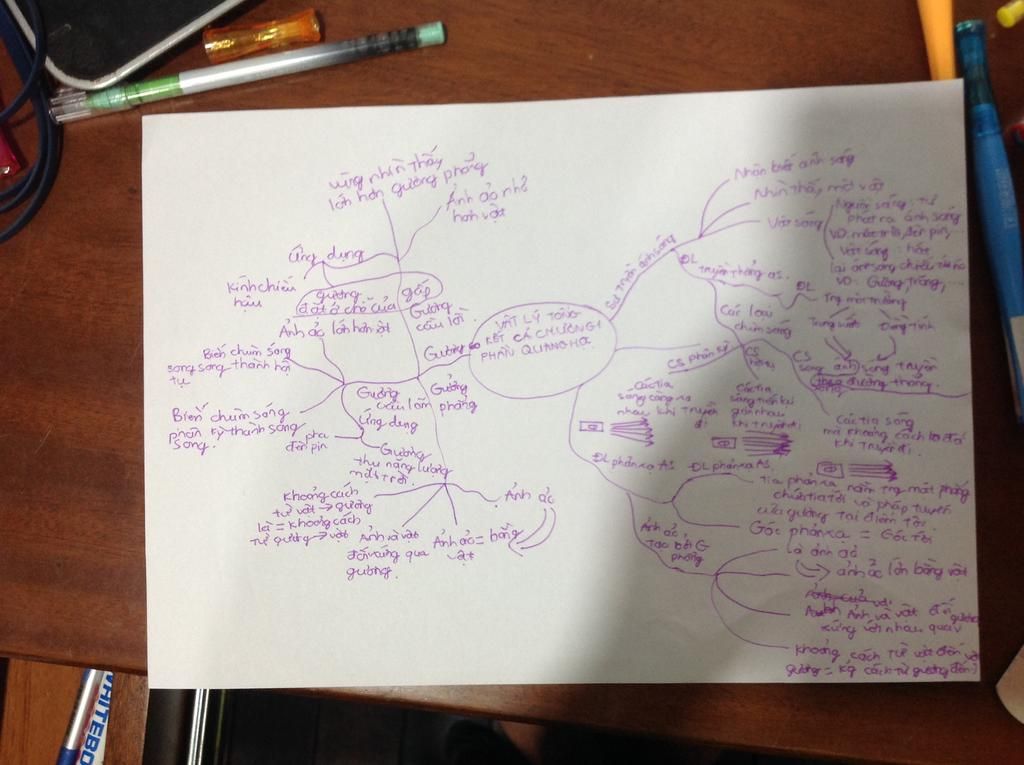 VẬT LÝ TỔNG
KẾT CẢ CHƯƠNG 1
PHẦN QUANG HỌC
Gương
Gương
cầu lồi
vùng nhìn thấy
lớn hơn gương phẳng
Ảnh ảo nhỏ
hơn vật
Ứng dụng
Kính chiếu
hậu
gương
đặt ở chỗ cua
gấp
Gương
cầu lõm
Ảnh ảo lớn hơn vật
Biến chùm sáng
song song thành hội
tụ
Biến chùm sáng
phân kỳ thành song
song.
Ứng dụng
pha
đèn pin
Gương
thu năng lượng
mặt trời.
Gương
phẳng
Khoảng cách
từ vật → gương
là = khoảng cách
từ gương → vật
Ảnh và vật
đối xứng qua
gương.
Ảnh ảo = bằng
vật
Ảnh ảo
Sự truyền ánh sáng
Nhận biết ánh sáng
Nhìn thấy một vật
Vật sáng
Nguồn sáng: tự
phát ra ánh sáng
VD: mặt trời, đèn pin,...
Vật sáng: hắt
lại ánh sáng chiếu vào nó
VD: Gương, trăng,...
ĐL
Truyền thẳng as.
ĐL
Trg môi trường
Trong suốt
Đồng tính
ánh sáng truyền
theo đường thẳng.
Các loại
chùm sáng
CS phân kỳ
Các tia
sáng càng xa
nhau khi truyền
đi
CS
hội tụ
Các tia
sáng tiến lại
gần nhau
khi truyền đi
CS
song
song
Các tia sáng
mà khoảng cách ko đổi
khi truyền đi.
ĐL phản xạ AS
ĐL phản xạ AS.
Tia phản xạ nằm trg mặt phẳng
chứa tia tới và pháp tuyến
của gương tại điểm tới.
Góc phản xạ = Góc tới
Ảnh ảo
tạo bởi G
phẳng
Là ảnh ảo
ảnh ảo lớn bằng vật
Ảnh của vật
Ảnh và vật đối
xứng với nhau qua
gương
Khoảng cách từ vật đến
gương = kg cách từ gương đến
WHITEBO